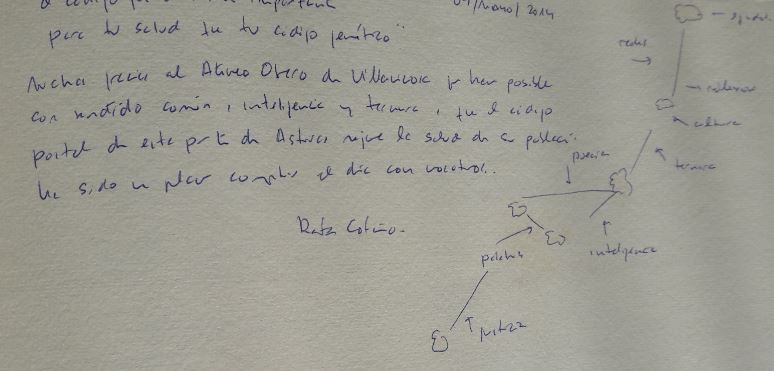 para tu salud que tu código genético"
Muchas gracias al Ateneo Obrero de Villaviciosa por hacer posible
con sentido común, inteligencia y ternura, que el código
postal de esta parte de Asturias mejore la salud de su población.
Ha sido un placer compartir el día con vosotros..
Rafa Cofiño.
redes
cultura
ternura
poesía
inteligencia
palabras
justicia